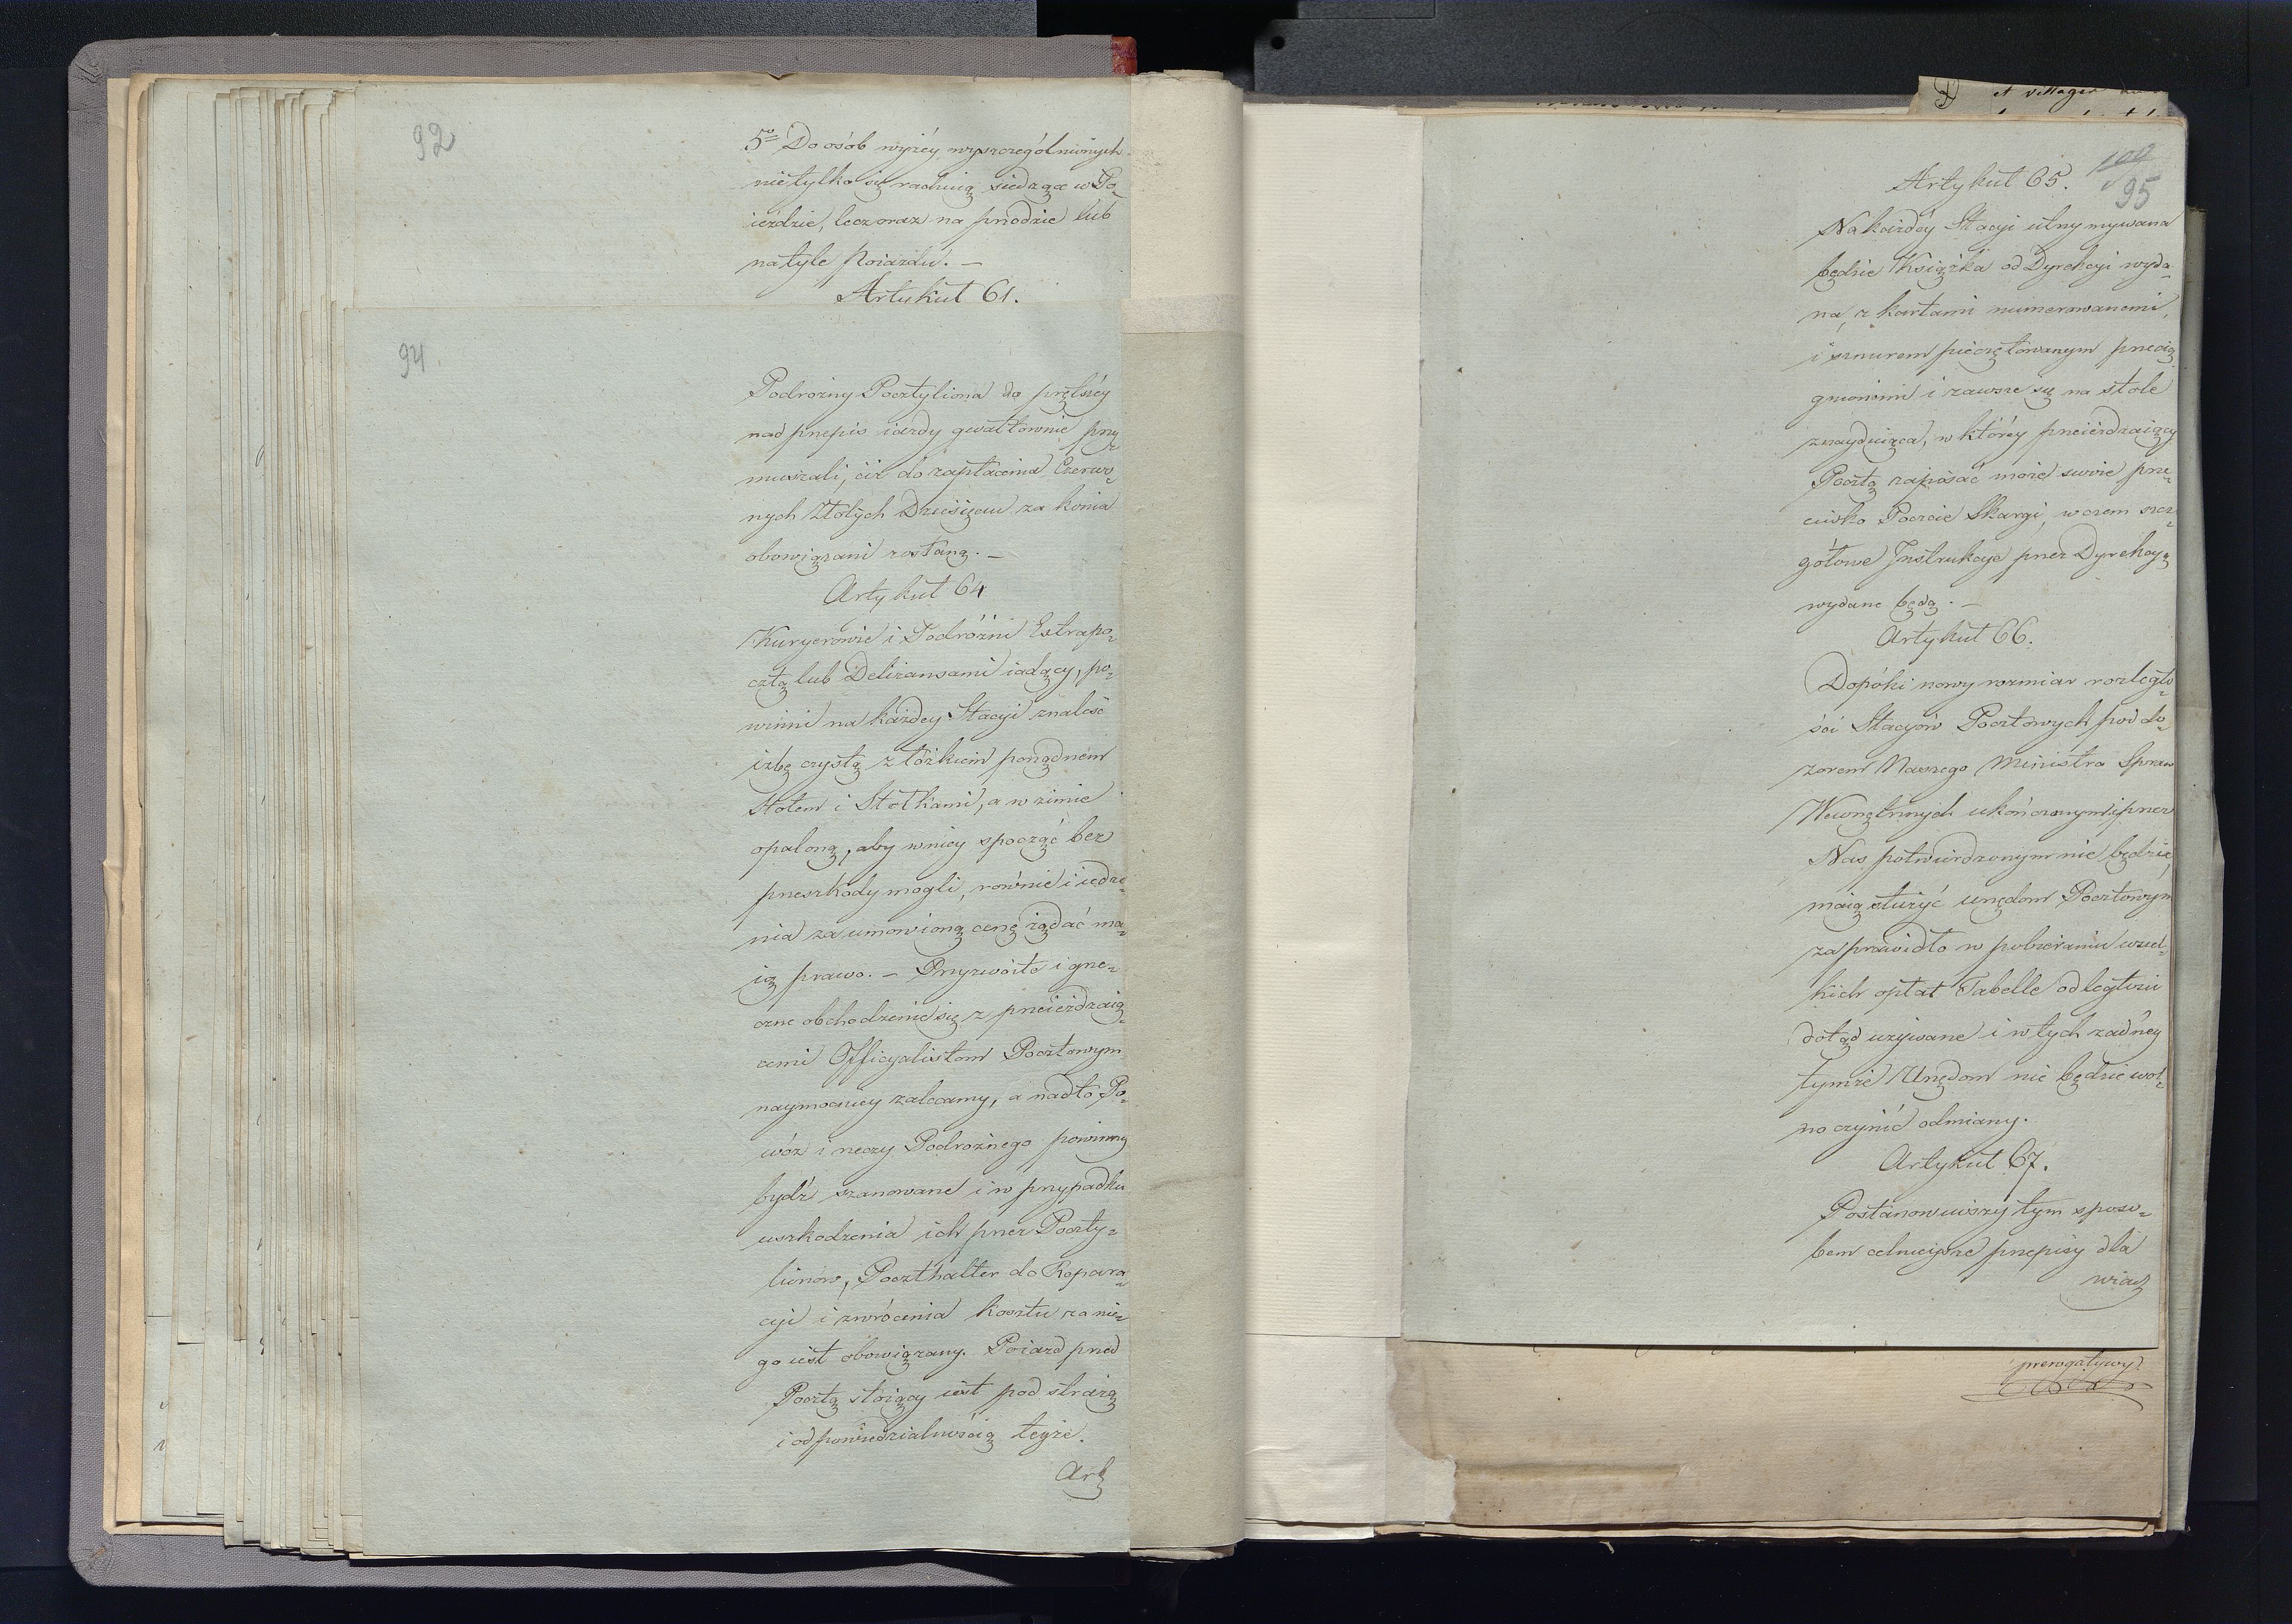 92
5º Do osób wyżéy wyszczególnionych
nietylko się rachuią siedzące w Po-
ieździe, lecz oraz na przodzie lub
na tyle Poiazdu. —
Artykuł 61.
94.
Podrożny Pocztyliona do prętszéy
nad przepis iazdy gwałtownie przy-
muszali, ciż do zapłacenia Czerwo-
nych Złotych Dziesięciu za konia
obowiązani zostaną. —
Artykuł 64
Kuryerowie i Podróżni Extrapo-
cztą lub Deliżansami iadący, po-
winni na każdey Stacyi znaleść
izbę czystą z łóżkiem porządném
stołem i Stołkami, a w zimie
opaloną, aby wniey spocząć bez
przeszkody mogli, rownie i iedze-
nia za umowioną cenę żądać ma-
ią prawo. — Przyzwoite i grze-
czne obchodzenie się z przeieżdzaią-
cemi Officyalistom Pocztowym
naymocniey zalecamy, a nadto Po-
wóz i rzeczy Podrożnego powinny
bydź szanowane i w przypadku
uszkodzenia ich przez Poczty-
lionow, Poczthalter do Repara-
cyi i zwrócenia kosztu za nie-
go iest obowiązany. Poiazd przed
Pocztą stoiący iest pod strażą
i odpowiedzialnością teyże.
Art
199
95
Artykuł 65.
Na każdéy Stacyi utrzymywana
będzie Książka od Dyrekcyi wyda-
na, z kartami numerowanemi,
i sznurem pieczętowanym przecią-
gnionemi i zawsze się na stole
znayduiąca, w któréy przeieżdzaiący
Pocztą zapisać może swoie prze-
ciwko Poczcie Skargi, w czem szcze-
gółowe Instrukcye przez Dyrekcyą
wydane będą. —
Artykuł 66.
Dopóki nowy rozmiar rozległo-
ści Stacyów Pocztowych pod do-
zorem Naszego Ministra Spraw
Wewnętrznych ukończonym i przez
Nas potwierdzonym nie będzie,
maią służyć urzędom Pocztowym
za prawidło w pobieraniu wszel-
kich opłat Tabelle odległości
dotąd używane i w tych żadnéy
tymże Urzędom nie będzie wol-
no czynić odmiany.
Artykuł 67.
Postanowiwszy tym sposo-
bem celnieysze przepisy dla
wiad
prerogatywy